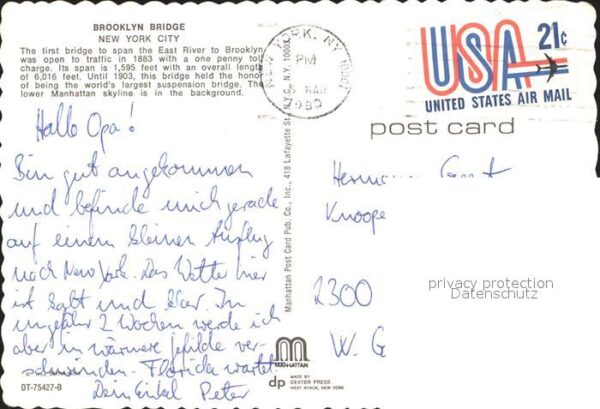 BROOKLYN BRIDGE
NEW YORK CITY
The first bridge to span the East River to Brooklyn
was open to traffic in 1883 with a one penny toll
charge. Its span is 1,595 feet with an overall length
of 6,016 feet. Until 1903, this bridge held the honor
of being the world's largest suspension bridge. The
lower Manhattan skyline is in the background.
Hallo Opa!
Bin gut angekommen
und befinde mich gerade
auf einem kleinen Ausflug
nach New York. Das Wetter hier
ist kalt und klar. In
ungefähr 2 Wochen werde ich
aber in wärmere Gefilde ver-
schwinden. Florida wartet.
Dein Enkel Peter
DT-75427-B
Manhattan Post Card Pub. Co., Inc., 418 Lafayette St., N.Y.C., N.Y. 10003
MANHATTAN
dp
MADE BY
DEXTER PRESS
WEST NYACK, NEW YORK
NEW YORK, NY
PM
MAR
1980
USA 21¢
UNITED STATES AIR MAIL
post card
Knoope
2300
W. G
privacy protection
Datenschutz